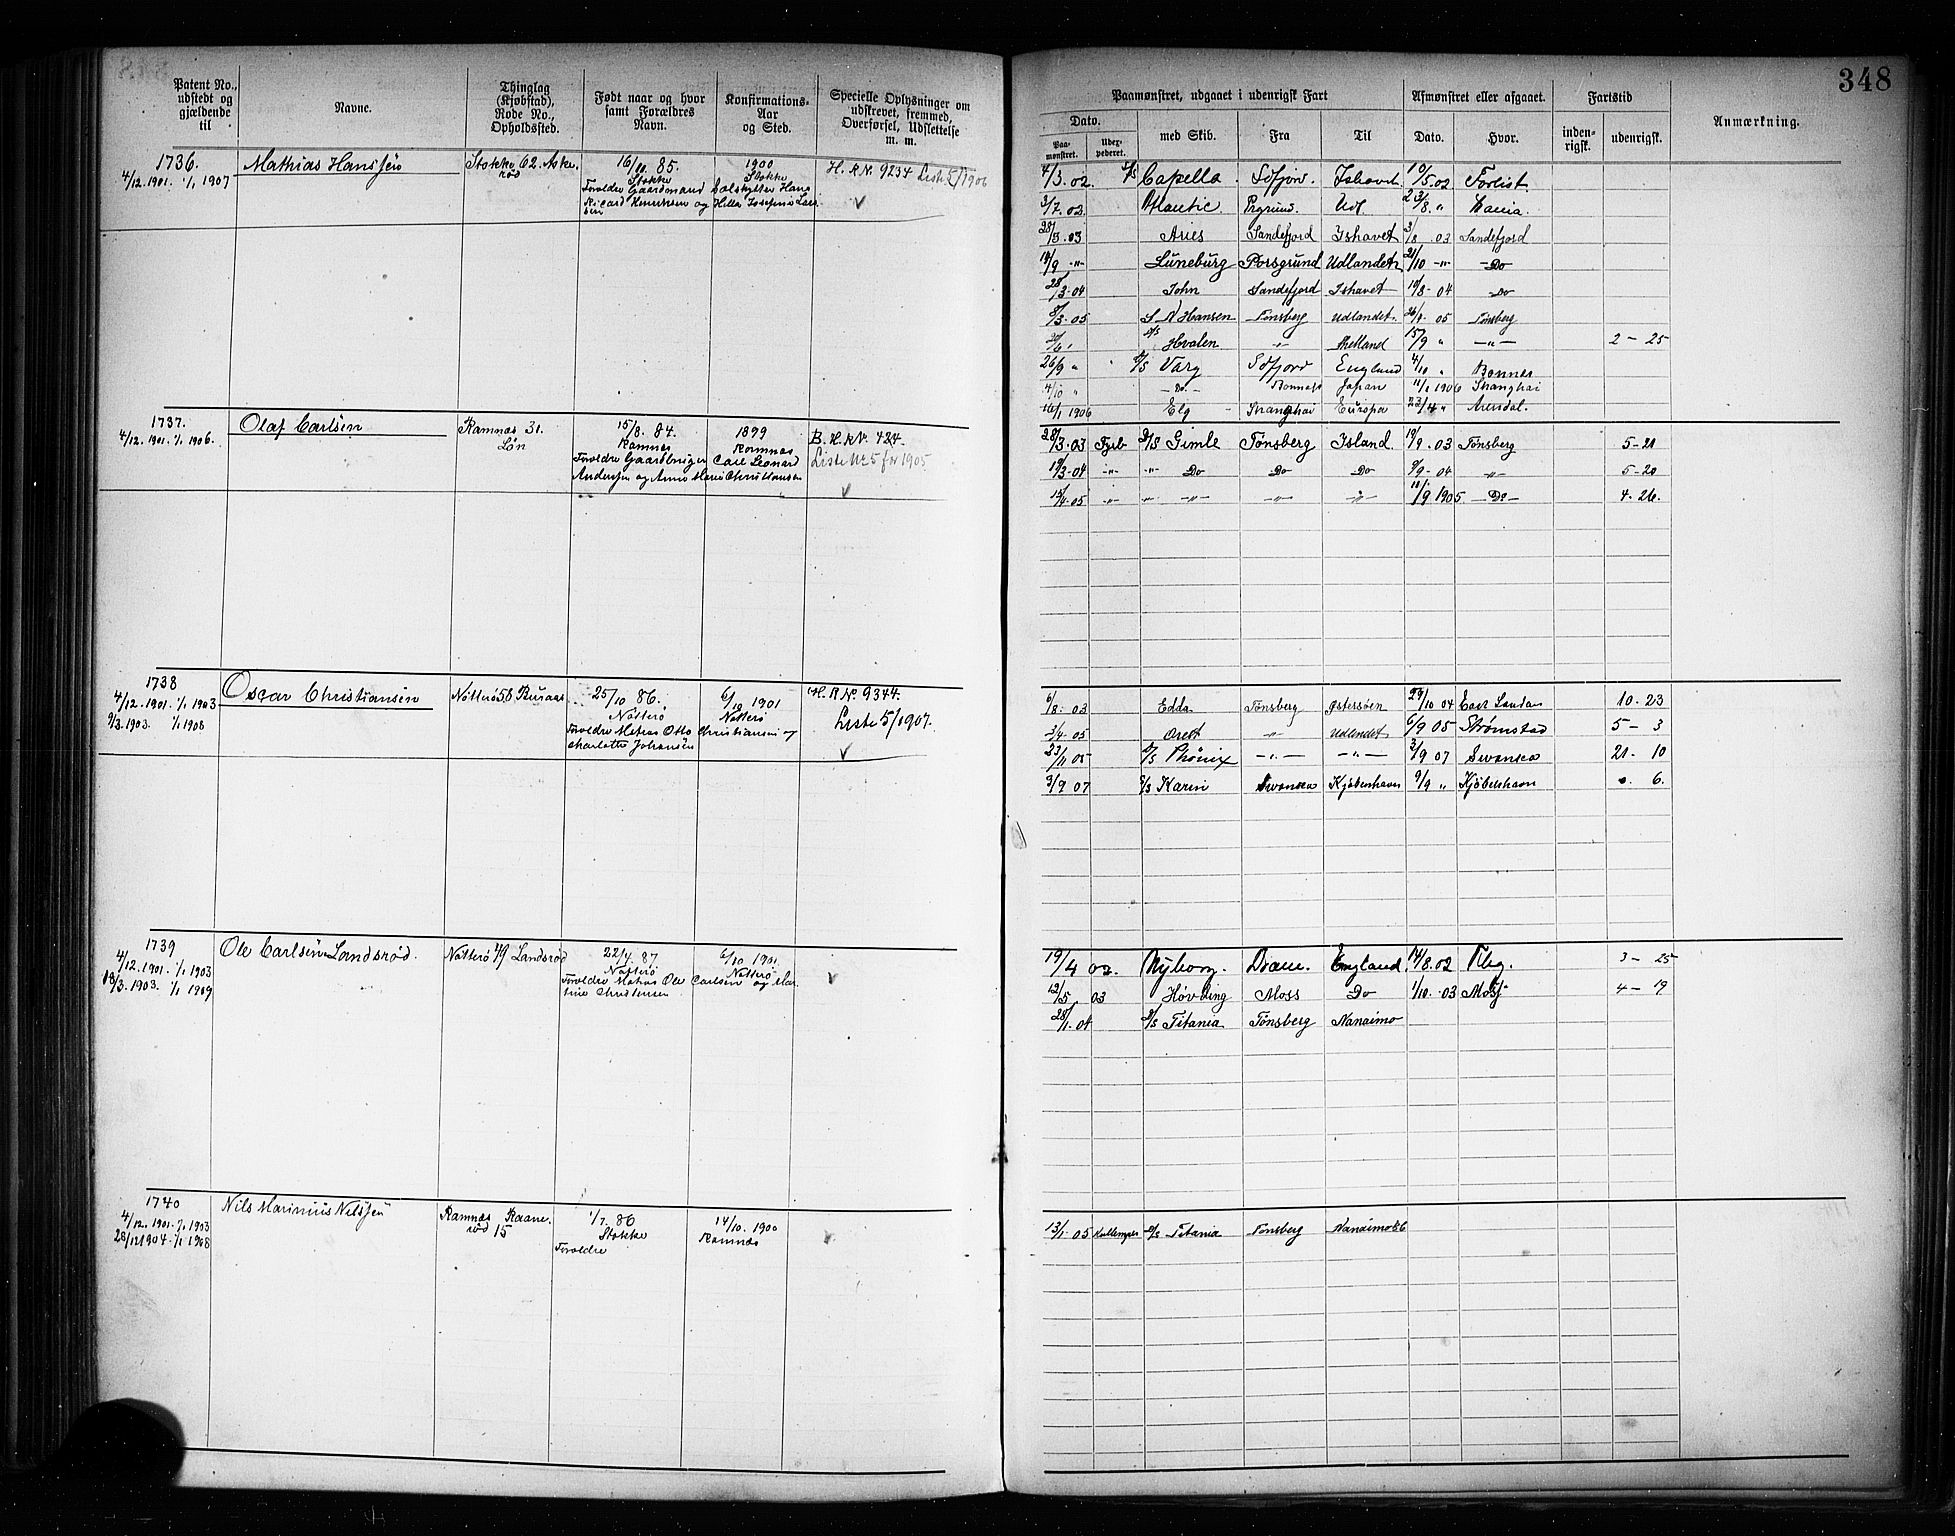 348
Patent No., udstedt og gjældende til
Navne.
Thinglag (Kjøbstad), Rode No., Opholdssted.
Født naar og hvor samt Forældres Navn.
Konfirmations-Aar og Sted.
Specielle Oplysninger om udskrevet, fremmed, Overførsel, Udslettelse m. m.
Paamønstret, udgaaet i udenrigsk Fart
Dato.
Paa-mønstret.
Udex-pederet.
med Skib.
Fra
Til
Afmønstret eller afgaaet.
Dato.
Hvor.
Fartstid
inden-rigsk.
udenrigsk.
Anmærkning.
1736.
4/12.1901. 1/1 1907
Mathias Hanssen
Stokke 62. Aske
rød
16/10. 85.
Stokke
Forældre Gaardmand Sølskytter Hans
Ricard Henriksen og Helle Josefine Lar
sen
1900
Stokke
H. R. N. 9234 Liste 5/1906
4/3.02. S/S Capella Sdfjord. Ishavet 10/5.02 Forlist
3/7.02 Atlantic Prgrund. Udl. 23/8. "
28/3.03 Aries Sandefjord Ishavet 3/8 03 Sandefjord
10/9 -"- Lüneburg Porsgrund Udlandet 21/10 -"- Do
28/3-04 John Sandefjord Ishavet 10/8-04 Do
8/3.05 S N Hansen Tønsberg Udlandet. 26/5. 05 Tønsberg
S/S Hvalen -"- Shetland 15/9 " -"- 2 - 25
26/9 " S/S Varg Sdfjord England 4/10 "
4/10 " -Do- Japan 11/1 1906 Shanghai
16/1 1906 Elg Shanghai Europa 23/4 " Arendal.
1737.
4/12.1901. 1/1.1906.
Olaf Carlsen
Ramnæs 31.
Løn
15/8. 84.
Ramnæs
Forældre Gaardbruger Carl Leonard
Andersen og Anne Marie Christiansen
1899
Ramnæs
B. H. R. Nr. 424.
Liste Nr 5 for 1905
28/3.03 Fyrb S/S Gimle Tønsberg Island. 19/9.03 Tønsberg 5-21
19/3.04 -"- -"- Do Do Do 9/9-04 -"- 5-20
15/4.05 -"- -"- -"- -"- -"- 11/9 1905 Do 4.26.
1738
4/12.1901. 1/1 1903
9/3.1903. 1/1 1908
Oscar Christiansen
Nøtterø 58 Buraas
25/10 86.
Nøtterø
Forældre Matros Otto Christiansen og
Charlotte Johansen
6/10 1901
Nøtterø
H. R No. 9344.
Liste 5/1907.
6/8. 03 Edda Tønsberg Østersøen 29/10 04 10. 23
3/4. 05 Orest " Udlandet 6/9 05 Strømstad 5 - 3
23/11 05 S/S Phønix -"- -"- 3/9 07 Swansea 21. 10
3/9 07 S/S Karin Swansea Kjøbenhavn 9/9 " Kjøbenhavn 0. 6.
1739
4/12.1901. 1/1 1903
18/3. 1903. 1/1 1909
Ole Carlsen Landsrød.
Nøtterø 49 Landsrød
22/4. 87
Nøtterø
Forældre Matros Ole Carlsen og Mar
tine Christensen
6/10 1901.
Nøtterø
19/4 02. Nyborg. Dram. England. 14/8.02 Tbg. 3 - 25
12/5 03 Høvding Moss Do 1/10. 03 Moss. 4 - 19
28/1. 04 S/S Titania Tønsberg Nanaimo
1740
4/12.1901. 1/1.1903
28/12 1904. 1/1 1908
Nils Marinius Nilssen
Ramnæs Raane
rød 15
1/7. 86
Stokke
Forældre
14/10. 1900
Ramnæs
13/1. 05 Kullemper S/S Titania Tønsberg Nanaimo